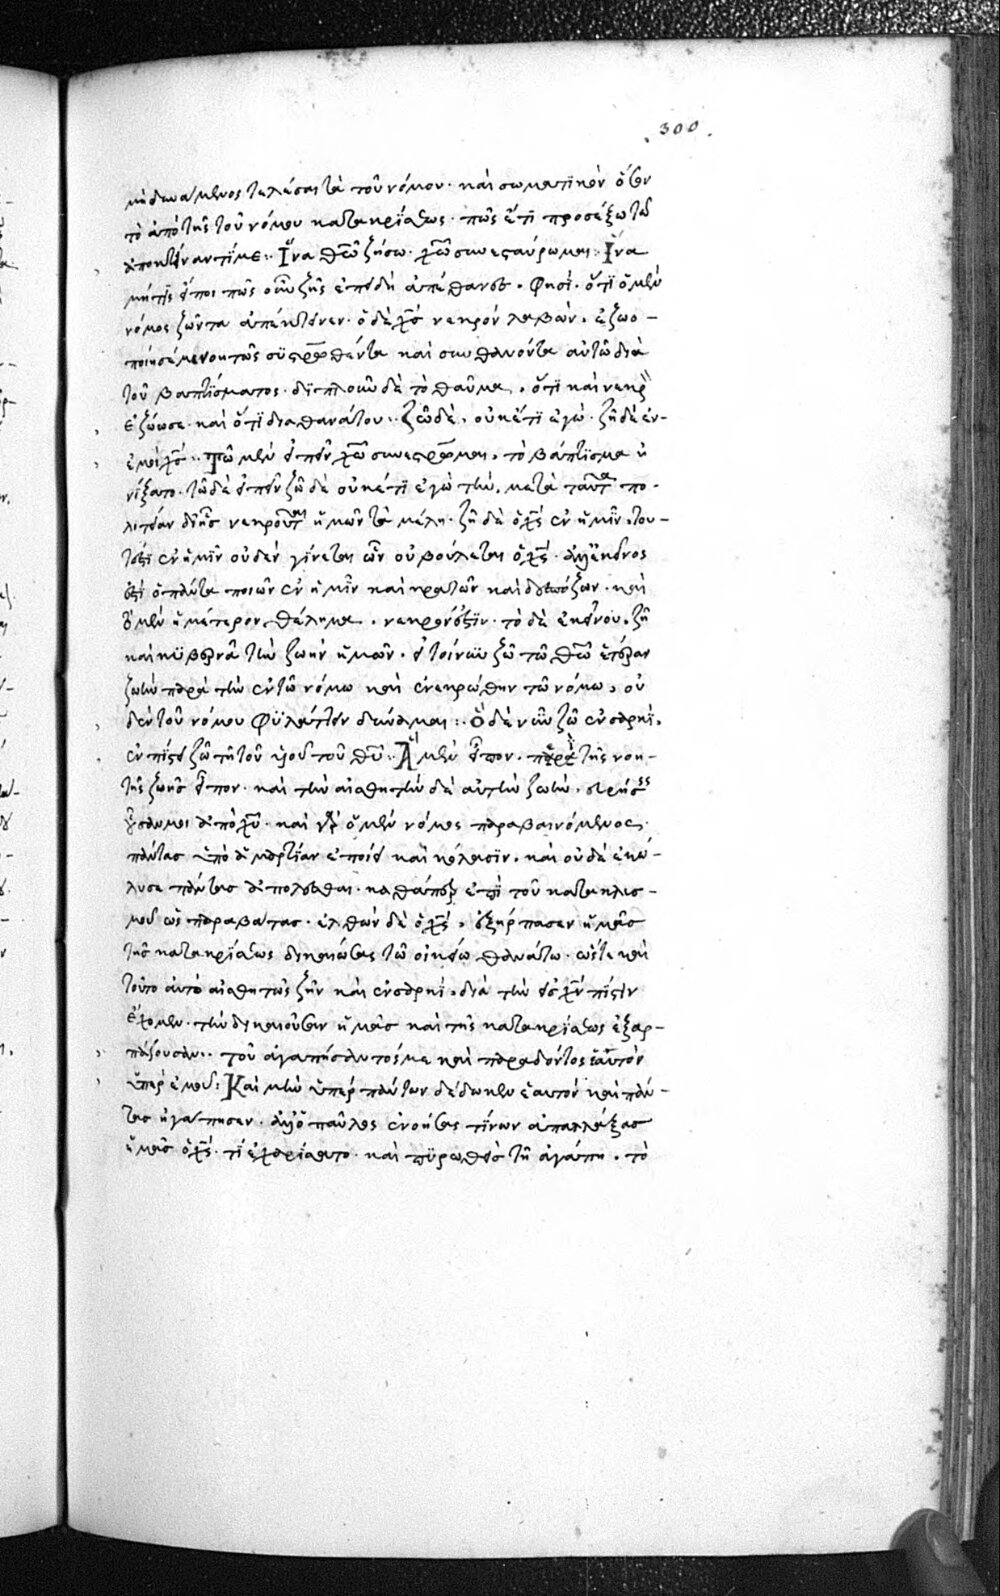 . 300 .
μὴ δυνάμενος τελέσαι τὰ τοῦ νόμου · καὶ σωματϊκὸν
τὸ ἀπὸ τῆς τοῦ νόμου κατακρίσεως · πῶς ἔτι προσέξω τῶ
ἀποκτείναντί με :· Ἵνα θῶ ζήσω · χῶ συνεσταύρωμαι :· Ἵνα
μήτις εἴποι πῶς οὖν ζῆς ἐπειδὴ ἀπέθανες · Φησί · ὅτι ὁ μὲν
νόμος ζῶντα ἀπέκτεινεν · ὁ δὲ χς νεκρὸν λαβὼν , ἐζωο -
ποίησέ με συσταυρωθέντα καὶ συνθανόντα αὐτῶ διὰ
τοῦ βαπτίσματος · διπλοῦν δὲ τὸ θαῦμα , ὅτι καὶ νεκρ
ἐζώωσε · καὶ ὅτι διὰ θανάτου :· ζῶ δὲ , οὐκέτι ἐγώ · ζῆ δὲ ἐν
ἐμοὶ χς :· Τῶ μὲν εἰπεῖν χῶ συνεσταύρωμαι , τὸ βάπτισμα ἠ
νίξατο · τῶ δὲ εἰπεῖν ζῶ δὲ οὐκέτι ἐγὼ τὴν , μετὰ ταῦτα πο -
λιτείαν δι' ἧς νεκροῦται ἡμῶν τὰ μέλη · ζῆ δὲ ὁ χς ἐν ἡμῖν , του -
τέστι ἐν ἡμῖν οὐδὲν γίνεται ὧν οὐ βούλεται ὁ χς · ἀλλ' ἐκεῖνος
ἐστὶ ὁ πάντα ποιῶν ἐν ἡμῖν καὶ κρατῶν καὶ δεσπόζων · καὶ
τὸ μὲν ἡμέτερον θέλημα , νεκρόν ἐστιν · τὸ δὲ ἐκείνου , ζῆ
καὶ κυβερνᾶ τὴν ζωὴν ἡμῶν · εἰ τοίνυν ζῶ τῶ θῶ ἑτέραν
ζωὴν παρὰ τὴν ἐν τῶ νόμω καὶ ἐνεκρώθην τῶ νόμω , οὐ
δὲν τοῦ νόμου φυλάττειν δύναμαι :· Ὃ δὲ νῦν ζῶ ἐν σαρκί ,
ἐν πίστει ζῶ τῆ τοῦ υἱοῦ τοῦ θυ :· Ἃ μὲν εἶπον , περὶ τῆς νοη -
τῆς ζωῆς εἶπον · καὶ τὴν αἰσθητὴν δὲ αὐτὴν ζωὴν ,
· καὶ γὰρ ὁ μὲν νόμος παραβαινόμενος ,
πάντας ὑπὸ ἁμαρτίαν ἐποίει καὶ κόλασιν , καὶ οὐδὲν ἐκώ -
λυσε πάντας ἀπολέσθαι · καθάπερ ἐπὶ τοῦ κατακλυσ -
μοῦ ὡς παραβάτας · ἐλθὼν δὲ ὁ χς , ἐξήρπασεν ἡμᾶς
τῆς κατακρίσεως δικαιώσας τῶ οἰκείω θανάτω · ὥστε καὶ
τοῦτο αὐτὸ αἰσθητῶς ζῆν καὶ ἐν σαρκί , διὰ τὴν εἰς χν πίστιν
ἔχομεν · τὴν δικαιοῦσαν ἡμᾶς καὶ τῆς κατακρίσεως ἐξαρ -
πάζουσαν :· τοῦ ἀγαπήσαντός με καὶ παραδόντος ἑαυτὸν
ὑπὲρ ἐμοῦ : Καὶ μὴν ὑπὲρ πάντων δέδωκεν ἑαυτὸν καὶ πάν -
τας ἠγάπησεν · ἀλλ' ὁ παῦλος ἐνοήσας τίνων ἀπαλλάξας
ἡμᾶς ὁ χς · τί ἐχαρίσατο · καὶ πυρωθεὶς τῆ ἀγάπη , τὸ